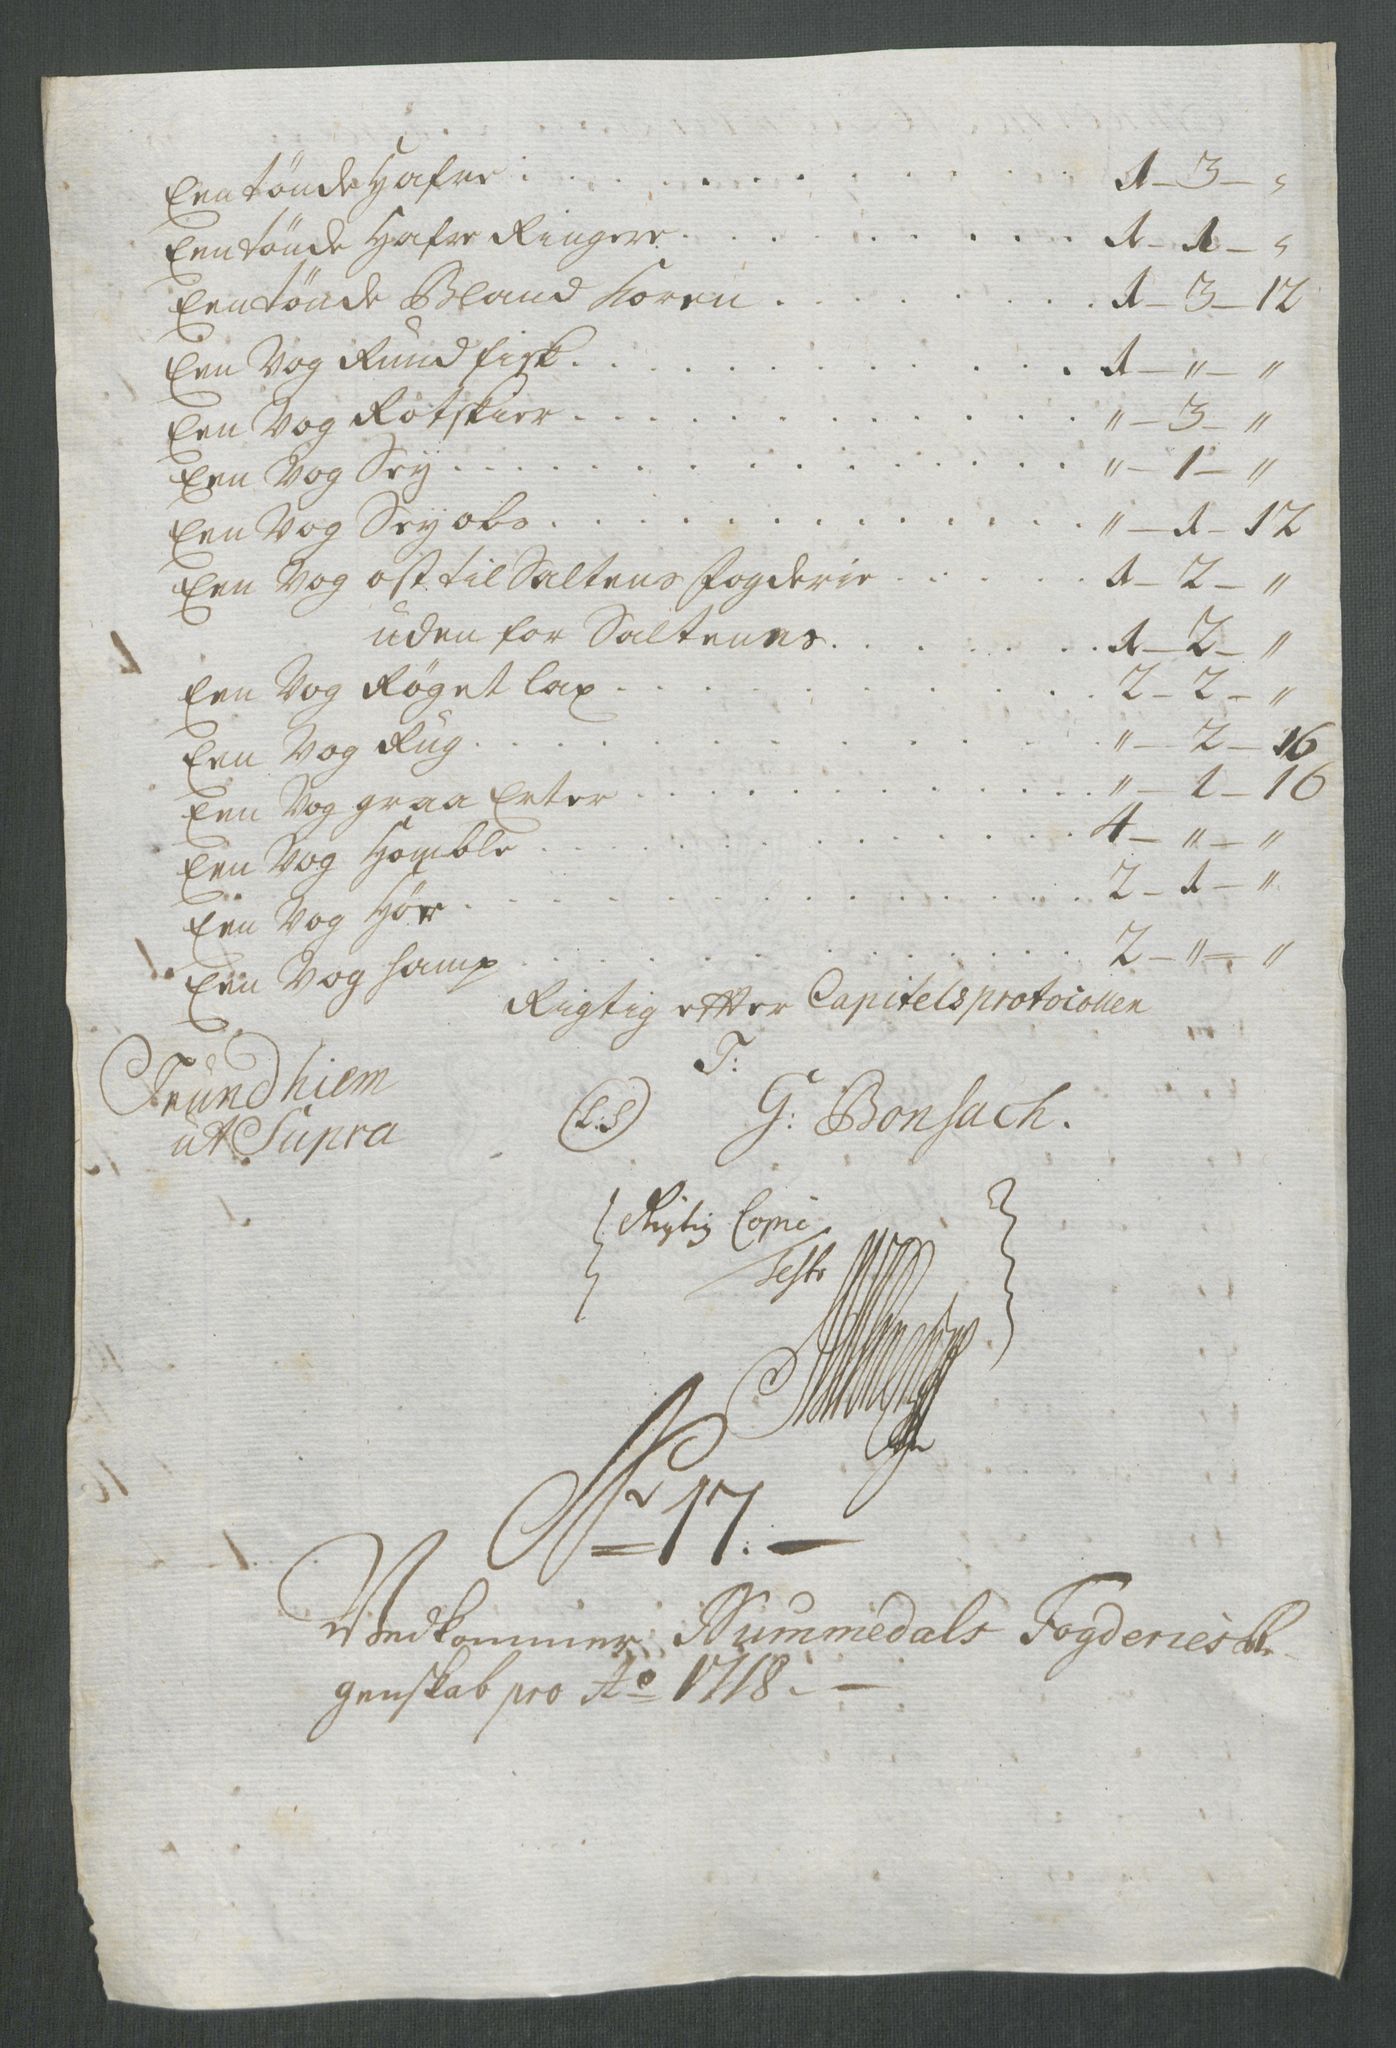 Een tønde Hafre . . . . . 1 – 3 – „
Een tønde Hafre Ringere . . . . . 1 – 1 – „
Een tønde Bland Koren . . . . . 1 – 3 – 12
Een Vog Rund fisk . . . . . 1 – „ – „
Een Vog Rotskier . . . . . „ – 3 – „
Een Vog Sey . . . . . „ – 1 – „
Een Vog Sey obs . . . . . „ – 1 – 12
Een Vog ost til Saltens fogderie . . . . . 1 – 2 – „
uden for Saltenns . . . . . 1 – 2 – „
Een Vog Røget lax . . . . . 2 – 2 – „
Een Vog Rug . . . . . „ – 2 – 16
Een Vog graa Erter . . . . . „ – 1 – 16
Een Vog Homble . . . . . 4 – „ – „
Een Vog Hør . . . . . 2 – 1 – „
Een Vog hamp . . . . . 2 – „ – „
Rigtig efter Capitelsprotocollen
T:
Trundhiem
ut Supra
(L.S) G: Bonsach.
Rigtig Copie
Teste
No 17. —
Vedkommer Nummedals Fogderies Re-
genskab pro Ao 1718. —